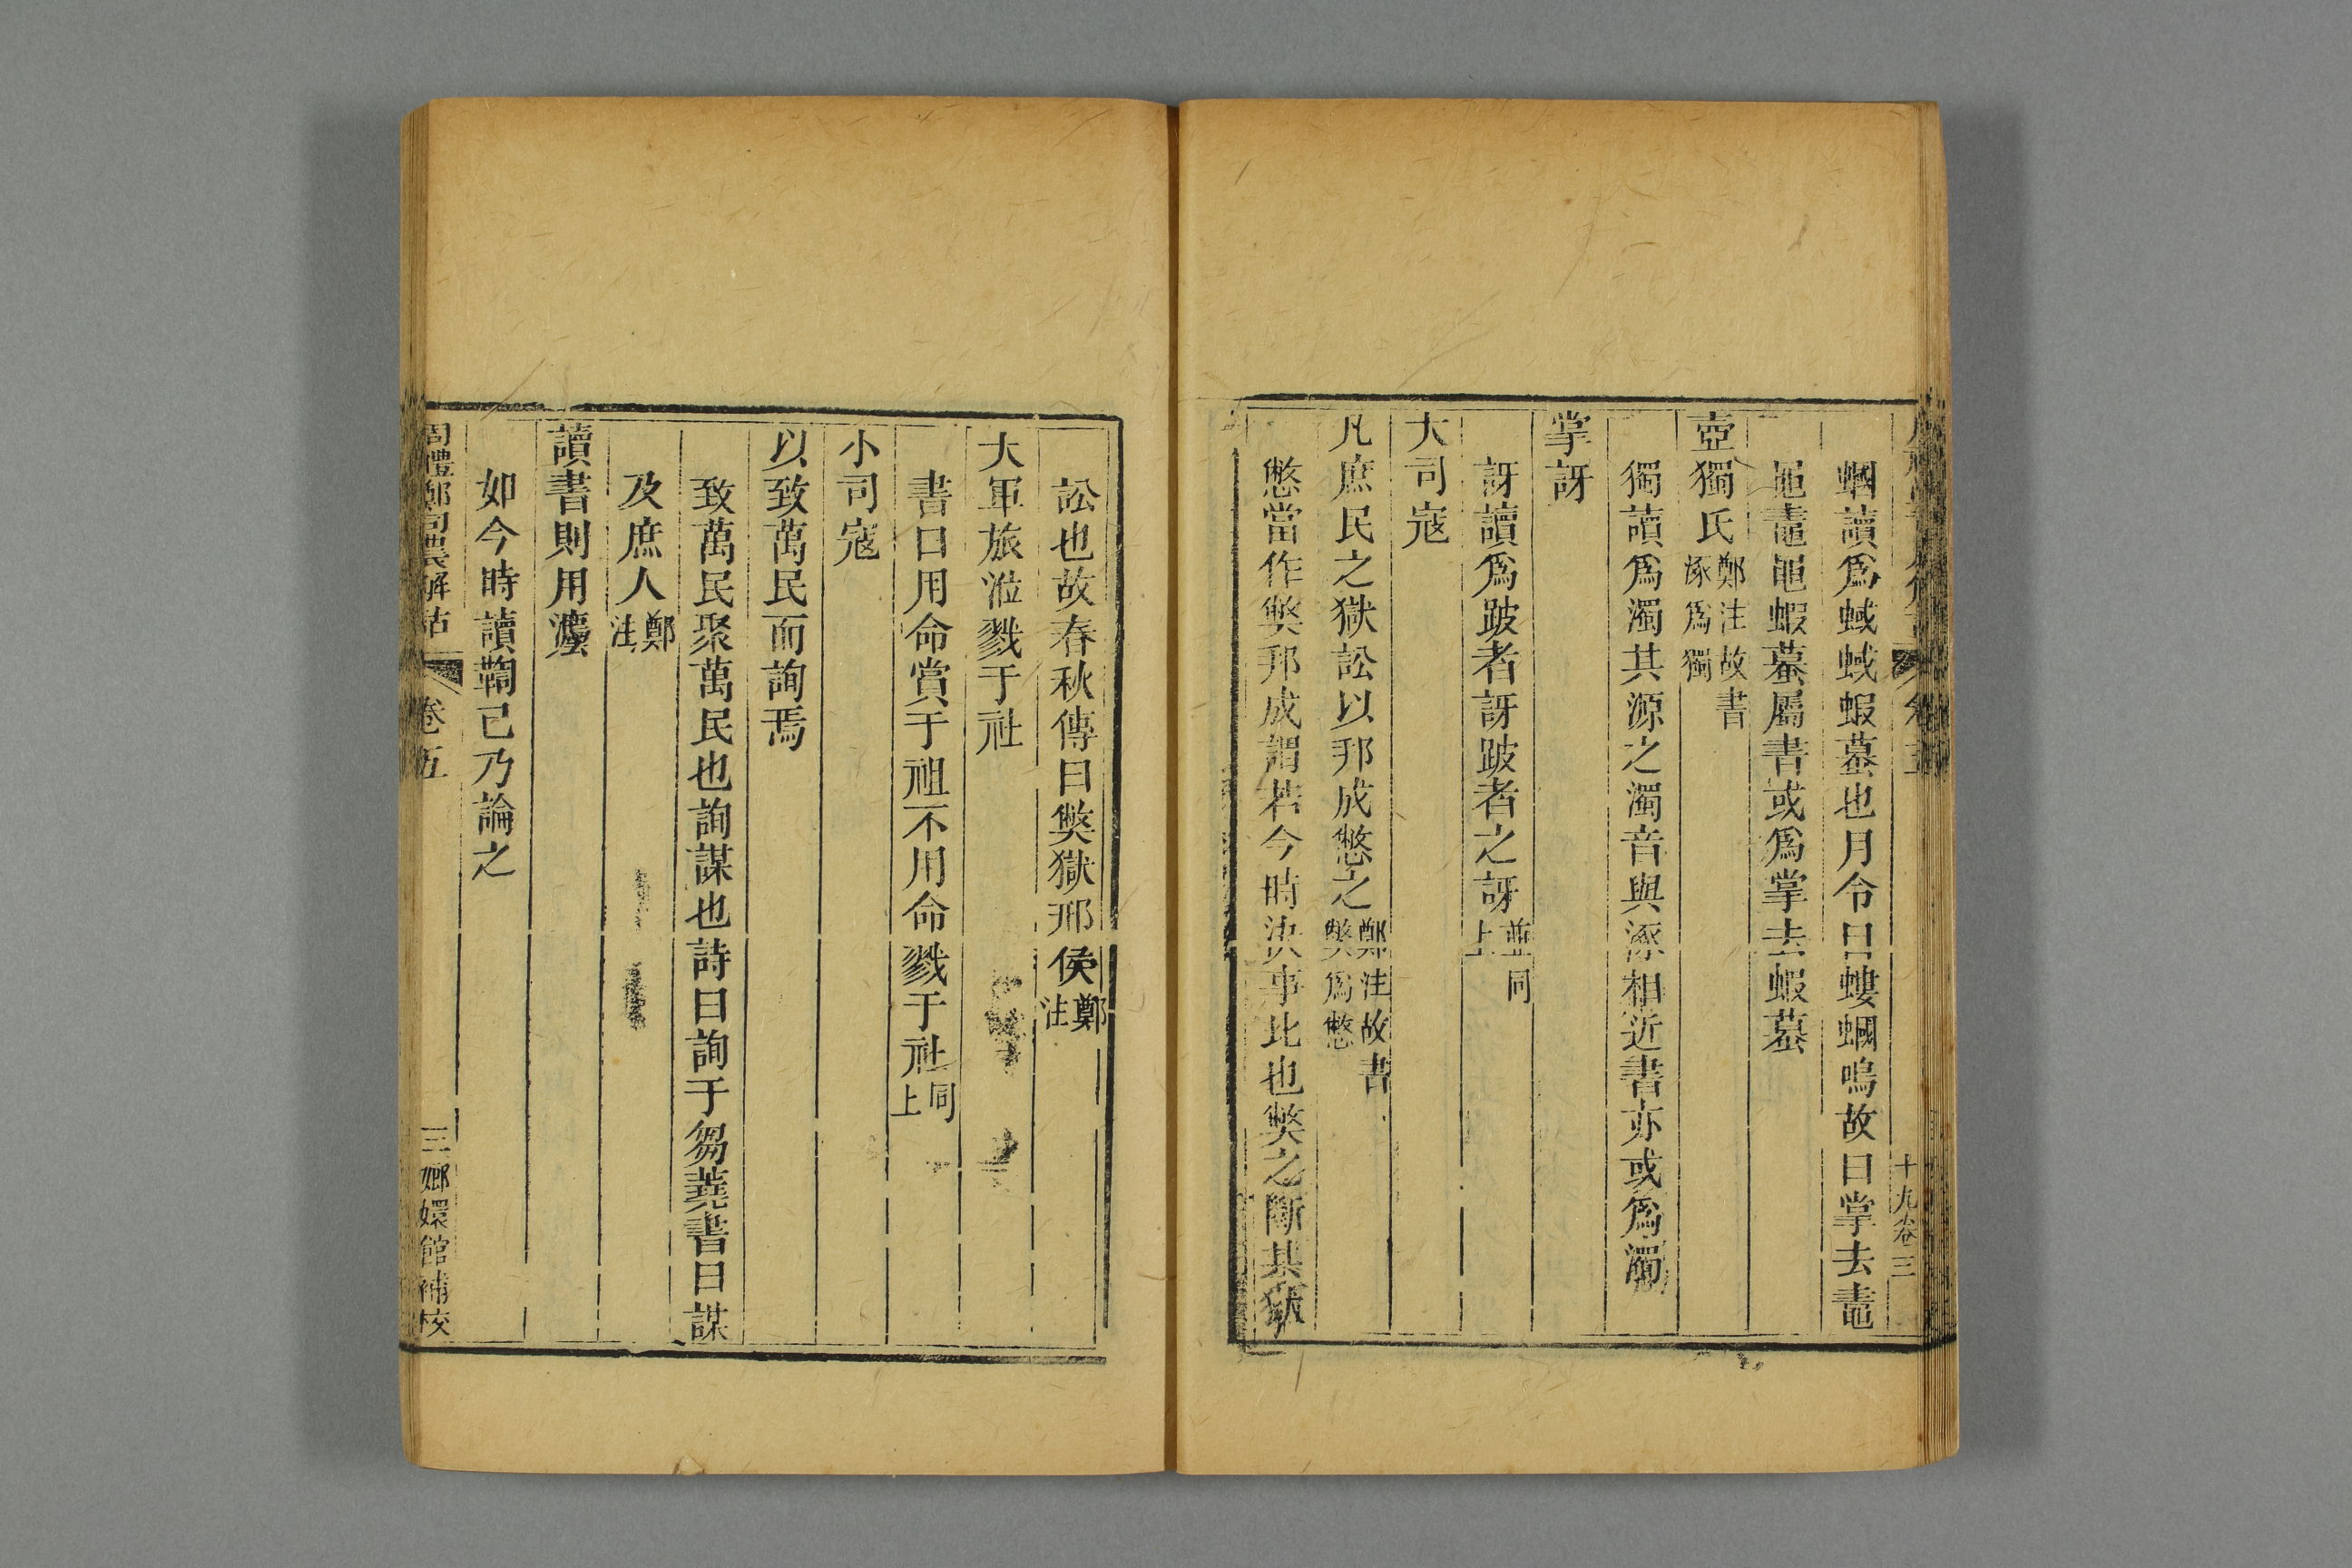 蟈讀爲蜮蜮蝦蟇也月令曰螻蟈鳴故曰掌去鼃
黽鼃黽蝦蟇屬書或爲掌去蝦蟇
壺獨氏鄭注故書涿爲獨
獨讀爲濁其源之濁音與涿相近書亦或爲濁
掌訝
訝讀爲跛者訝跛者之訝並同上
大司寇
凡庶民之獄訟以邦成憋之鄭注故書弊爲憋
憋當作弊邦成謂若今時決事比也弊之斷其獄
十九卷三
訟也故春秋傳曰弊獄邢侯鄭注
大軍旅涖戮于社
書曰用命賞于祖不用命戮于社同上
小司寇
以致萬民而詢焉
致萬民聚萬民也詢謀也詩曰詢于芻蕘書曰謀
及庶人鄭注
讀書則用灋
如今時讀鞫已乃論之
周禮鄭司農解詁 卷五 三 嫏嬛館補校